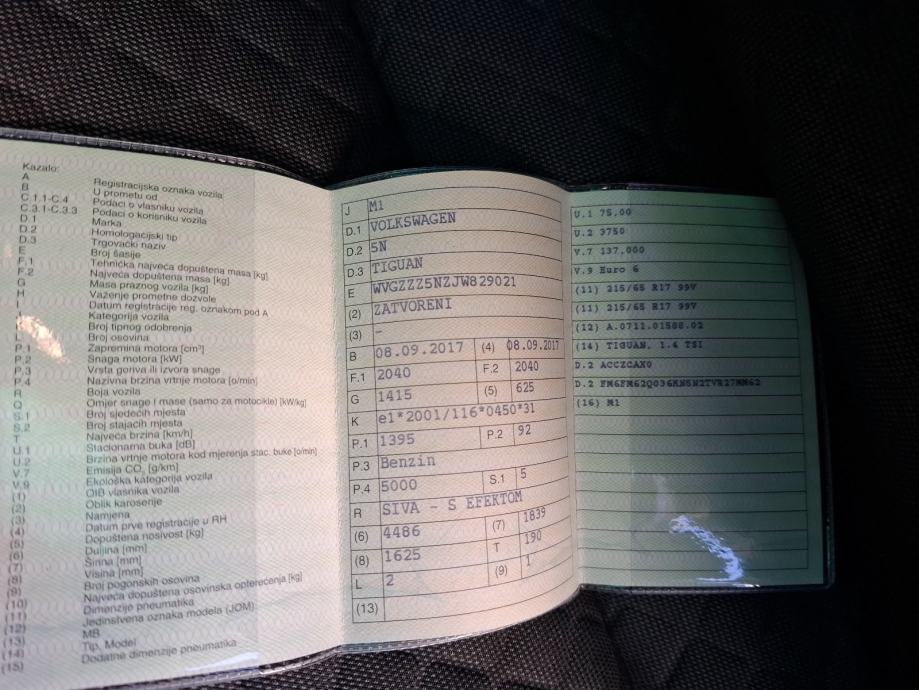 Kazalo:
A Registracijska oznaka vozila
B U prometu od
C.1.1-C.4 Podaci o vlasniku vozila
C.3.1-C.3.3 Podaci o korisniku vozila
D.1 Marka
D.2 Homologacijski tip
D.3 Trgovački naziv
E Broj šasije
F.1 Tehnička najveća dopuštena masa [kg]
F.2 Najveća dopuštena masa [kg]
G Masa praznog vozila [kg]
H Važenje prometne dozvole
I Datum registracije reg. oznakom pod A
Kategorija vozila
Broj tipnog odobrenja
L Broj osovina
P.1 Zapremina motora [cm³]
P.2 Snaga motora [kW]
P.3 Vrsta goriva ili izvora snage
P.4 Nazivna brzina vrtnje motora [o/min]
R Boja vozila
Q Omjer snage i mase (samo za motocikle) [kW/kg]
S.1 Broj sjedećih mjesta
S.2 Broj stajaćih mjesta
T Najveća brzina [km/h]
U.1 Stacionarna buka [dB]
U.2 Brzina vrtnje motora kod mjerenja stac. buke [o/min]
V.7 Emisija CO₂ [g/km]
V.9 Ekološka kategorija vozila
(1) OIB vlasnika vozila
(2) Oblik karoserije
(3) Namjena
(4) Datum prve registracije u RH
(5) Dopuštena nosivost [kg]
(6) Duljina [mm]
(7) Širina [mm]
(8) Visina [mm]
(9) Broj pogonskih osovina
(10) Najveća dopuštena osovinska opterećenja [kg]
(11) Dimenzije pneumatika
(12) Jedinstvena oznaka modela (JOM)
(13) MB
(14) Tip, Model
(15) Dodatne dimenzije pneumatika
J M1
D.1 VOLKSWAGEN
D.2 5N
D.3 TIGUAN
E WVGZZZ5NZJW829021
(2) ZATVORENI
(3) -
B 08.09.2017 (4) 08.09.2017
F.1 2040 F.2 2040
G 1415 (5) 625
K e1*2001/116*0450*31
P.1 1395 P.2 92
P.3 Benzin
P.4 5000 S.1 5
R SIVA - S EFEKTOM
(6) 4486 (7) 1839
(8) 1625 T 190
L 2 (9) 1
(13)
U.1 75,00
U.2 3750
V.7 137,000
V.9 Euro 6
(11) 215/65 R17 99V
(11) 215/65 R17 99V
(12) A.0711.01588.02
(14) TIGUAN, 1.4 TSI
D.2 ACCZCAX0
D.2 FM6FM62Q036KNSN2TVR27MM62
(16) M1